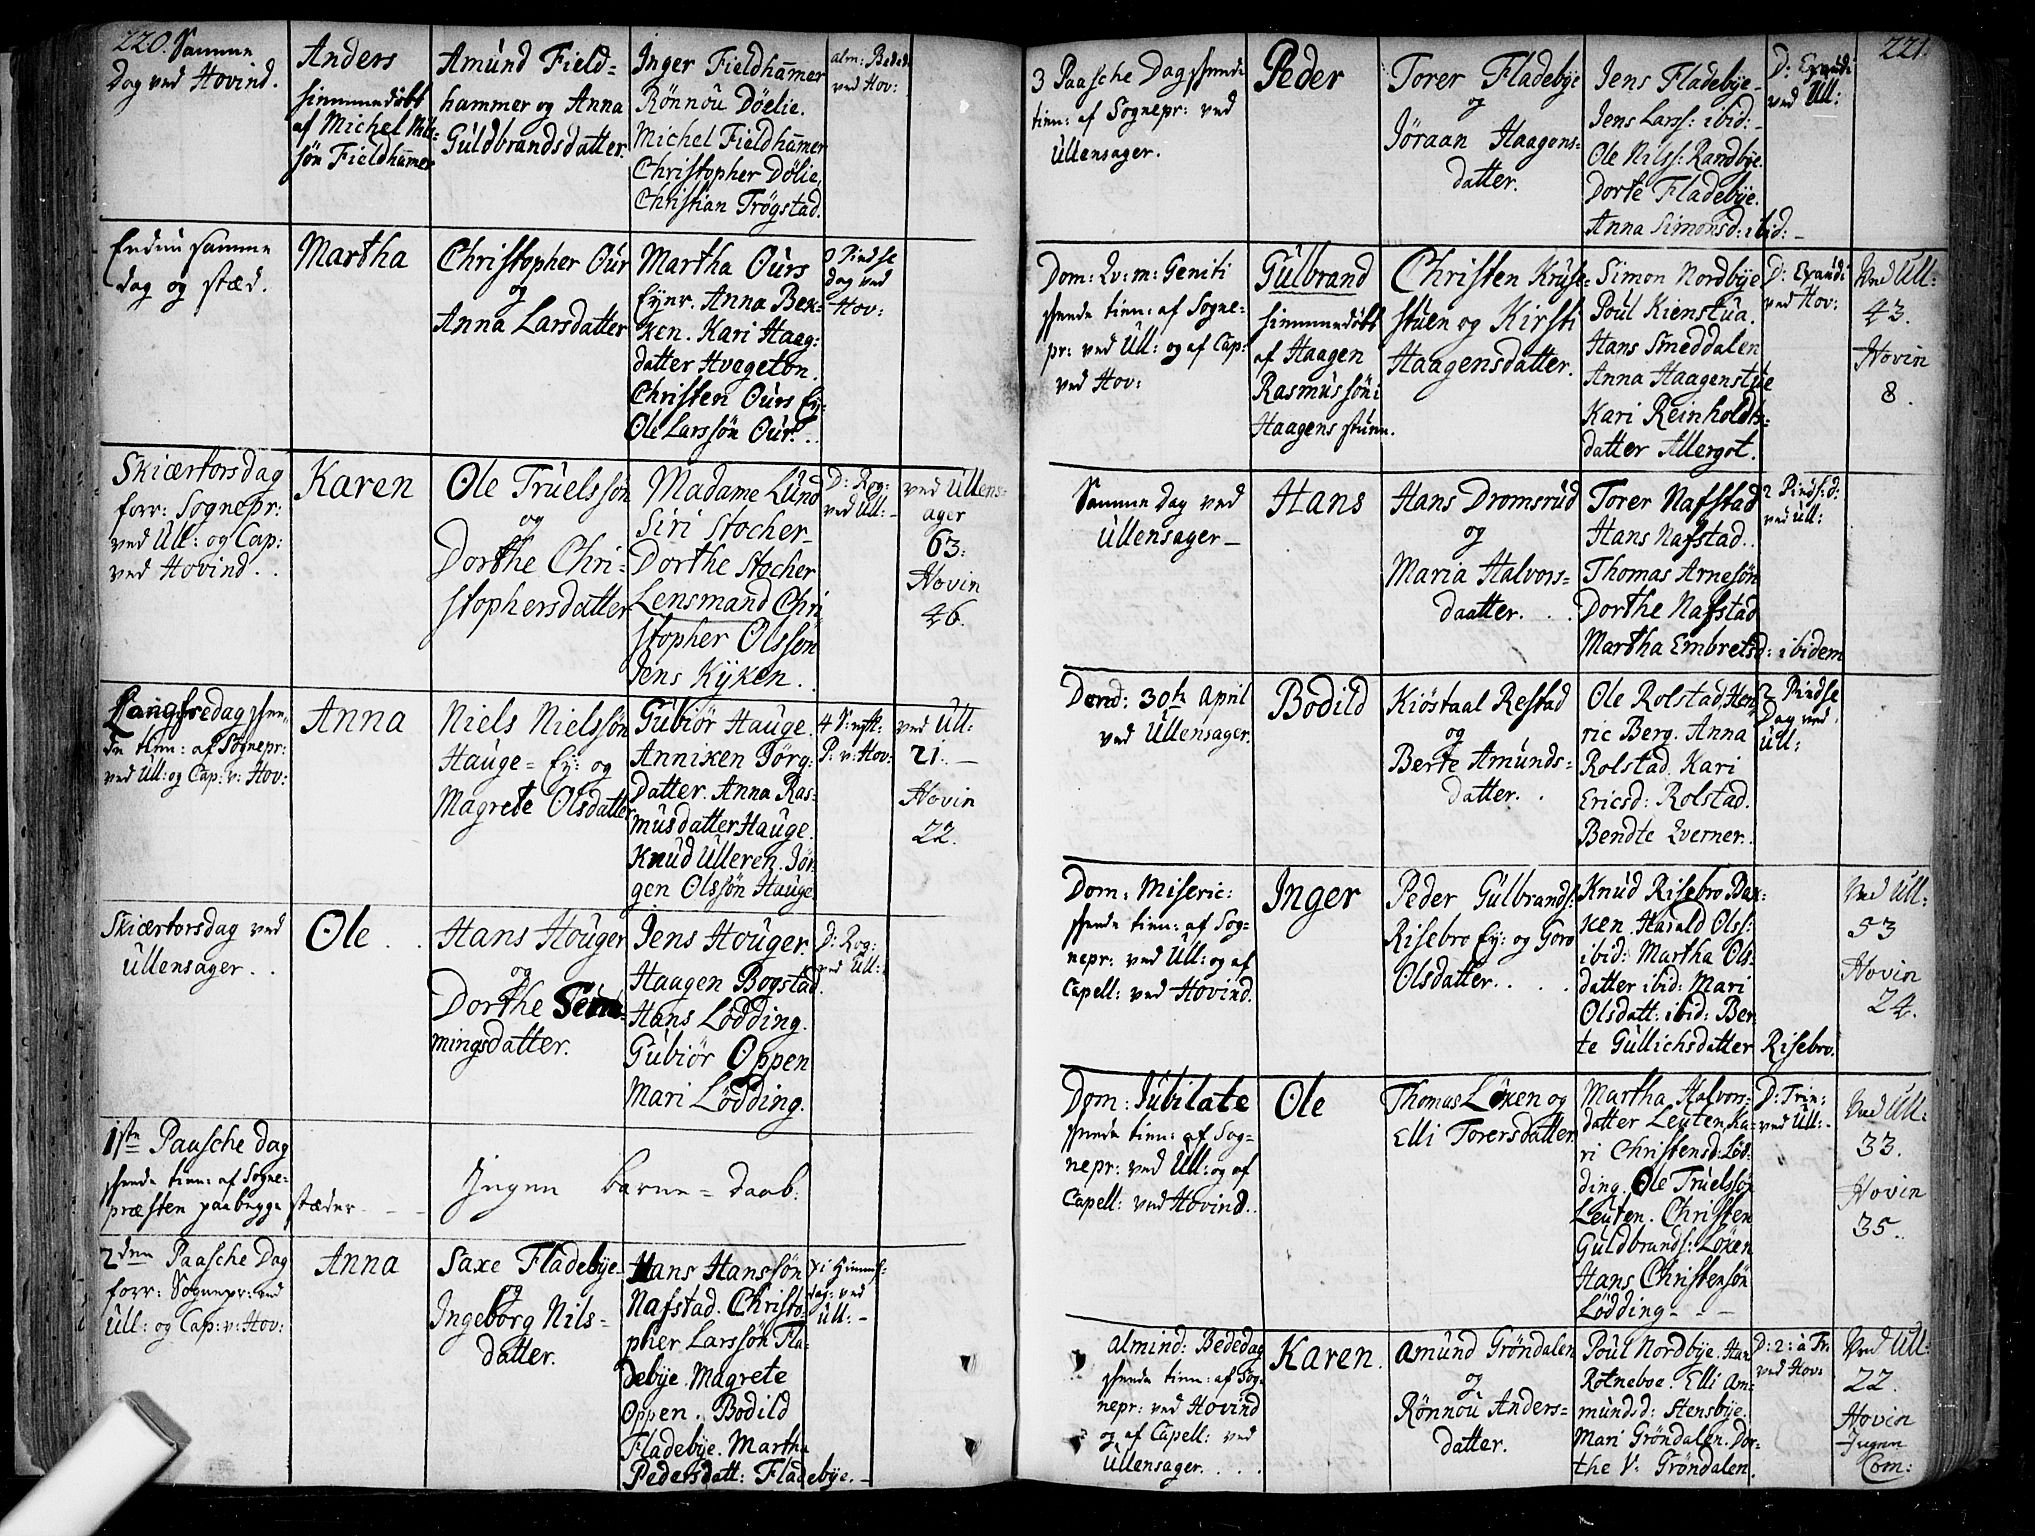 220. Samme
Dag ved Hovind.
Anders
hiemmedøbt
af Michel Nil-
søn Fieldham̄er
Amund Field-
hammer og Anna
Guldbrandsdatter.
Inger Fieldham̄er
Rönnou Döelie.
Michel Fieldham̄er
Christopher Dölie,
Christian Trögstad.
alm: Bededag
ved Hov:
Endnu samme
dag og stæd.
Martha
Christopher Our
og
Anna Larsdatter
Martha Ours
Eynr. Anna Bek-
ken. Kari Haag:
datter Hvageton.
Christen Ours Ey:
Ole Larssön Our..
2 Pindse
dag ved
Hov:
Skiærtorsdag
forr: Sognepr:
ved Ull: og Cap:
ved Hovind..
Karen
Ole Truelssön
og
Dorthe Chri-
stophersdatter
Madame Lund
Siri Stocher-
Dorthe Stocher
Lensmand Chri
stopher Olsson
Jens Kyken..
D: Rog:
ved Ull:-
ved Ullens-
ager
63:
Hovin
46.
Langfredag Ioren-
de tien: af Sognepr:
ved Ull: og Cap: v: Hov:
Anna
Niels Nielssön
Hauge= Ey: og
Magrete Olsdatter
Gubiör Hauge.
Anniken Jörg:
Datter. Anna Ras-
musdatter Hauge.
Knud Ulleren. Jör-
gen Olssön Hauge.
4 D: eft:
P: v: Hov:
ved Ull:
21.-
Hovin
22.
Skiærtorsdag ved
Ullensager..
Ole..
Hans Houger
og
Dorthe Sem-
mingsdatter.
Jens Houger.
Haagen Bogstad.
Hans Lödding.
Gubiör Oppen
Mari Lödding.
D: Rog:
ved Ull:
1ste Paasche Dag
tien: af Sogne-
præsten paa begge stæder
Ingen barne-daab.
2den Paasche Dag
forr: Sognepr: ved
Ull: og Cap: v: Hov:
Anna
Saxe Fladebye-
og
Ingeborg Nils-
datter.
Hans Hanssön
Nafstad. Christo-
pher Larssön Fla-
debye. Magrete
Oppen. Bodild
Fladebye. Martha
Pedersdatt: Fladebye.-
xi Himmelf-
dag: ved
Ull:-
221.
3 Paasche Dag
tien: af Sognepr: ved
Ullensager.
Peder
Torer Fladebye
og
Jöraan Haagens-
datter.
Jens Fladebye-
Jens Larss: ibid:-
Ole Nilss: Randbye.
Dorte Fladebye.
Anna Simonsd: ibid:-
D: Exaudi
ved Ull:
Dom: Qv: m: Geniti
tien: af Sogne-
pr: ved Ull: og af Cap:
ved Hov:
Gulbrand
hiemmedøbt
af Haagen
Rasmussön i
Haagens stuen.
Christen Kruse-
stuen og Kirsti
Haagensdatter.
Simon Nordbye
Poul Kienstua.
Hans Smeddalen
Anna Haagenstue
Kari Reinholdts-
datter Allergot.
D: Exaudi
ved Hov:
Ved Ull:
43.
Hovin
8.
Samme Dag ved
Ullensager-
Hans
Hans Dromsrud
og
Maria Halvors-
daatter...
Torer Nafstad
Hans Nafstad..
Thomas Arnesön
Dorthe Nafstad
Martha Embretsd: ibidem
2 Pinds: d:
ved Ull:
Dend: 30te April
ved Ullensager.
Bodild
Kiöstaal Restad
og
Berte Amunds-
datter..
Ole Rolstad, Hen-
ric Berg. Anna
Rolstad. Kari
Ericsd: Rolstad.
Bendte Qverner..
2 Pindse
Dag ved
Ull:
Dom: Miseric:
tien: af Sog-
nepr: ved Ull: og af
Capell: ved Hovind.
Inger
Peder Gulbrands:
Risebro Ey: og Goro
Olsdatter....
Knud Risebro Bak-
ken. Harald Olss:
ibid: Martha Ols-
datter ibid: Mari
Olsdatt: ibid: Ber-
te Gullichsdatter Risebro.
Ved Ull:
53
Hovin
24.
Dom: Jubilate
tien: af Sog-
nepr: ved Ull: og af
Capell: ved Hovind..
Ole
Thomas Löken og
Elli Torersdatter.
Martha Halvors-
datter Leuten, Ka-
ri Christensd: Löd-
ding. Ole Truelssön
Leuten. Christen
Guldbrands: Löken
Hans Christensön
Lödding--
D: Trin:
ved Ull:-
Ved Ull:
33.
Hovin
35..
Almind: Bededag
tien: af Sog-
nepr: ved Hovind
og af Capell: ved
Ullensager....
Karen.
Amund Gröndalen
og
Rönnou Anders-
datter.
Poul Nordbye. Han
Rotneboe. Elli Am-
mundsd: Stensbye.
Mari Gröndalen. Dor-
the V: Gröndalen.
D: 2: a Tr:
ved Hov:
Ved Ull:
22.
Hovin
Ingen
Com: